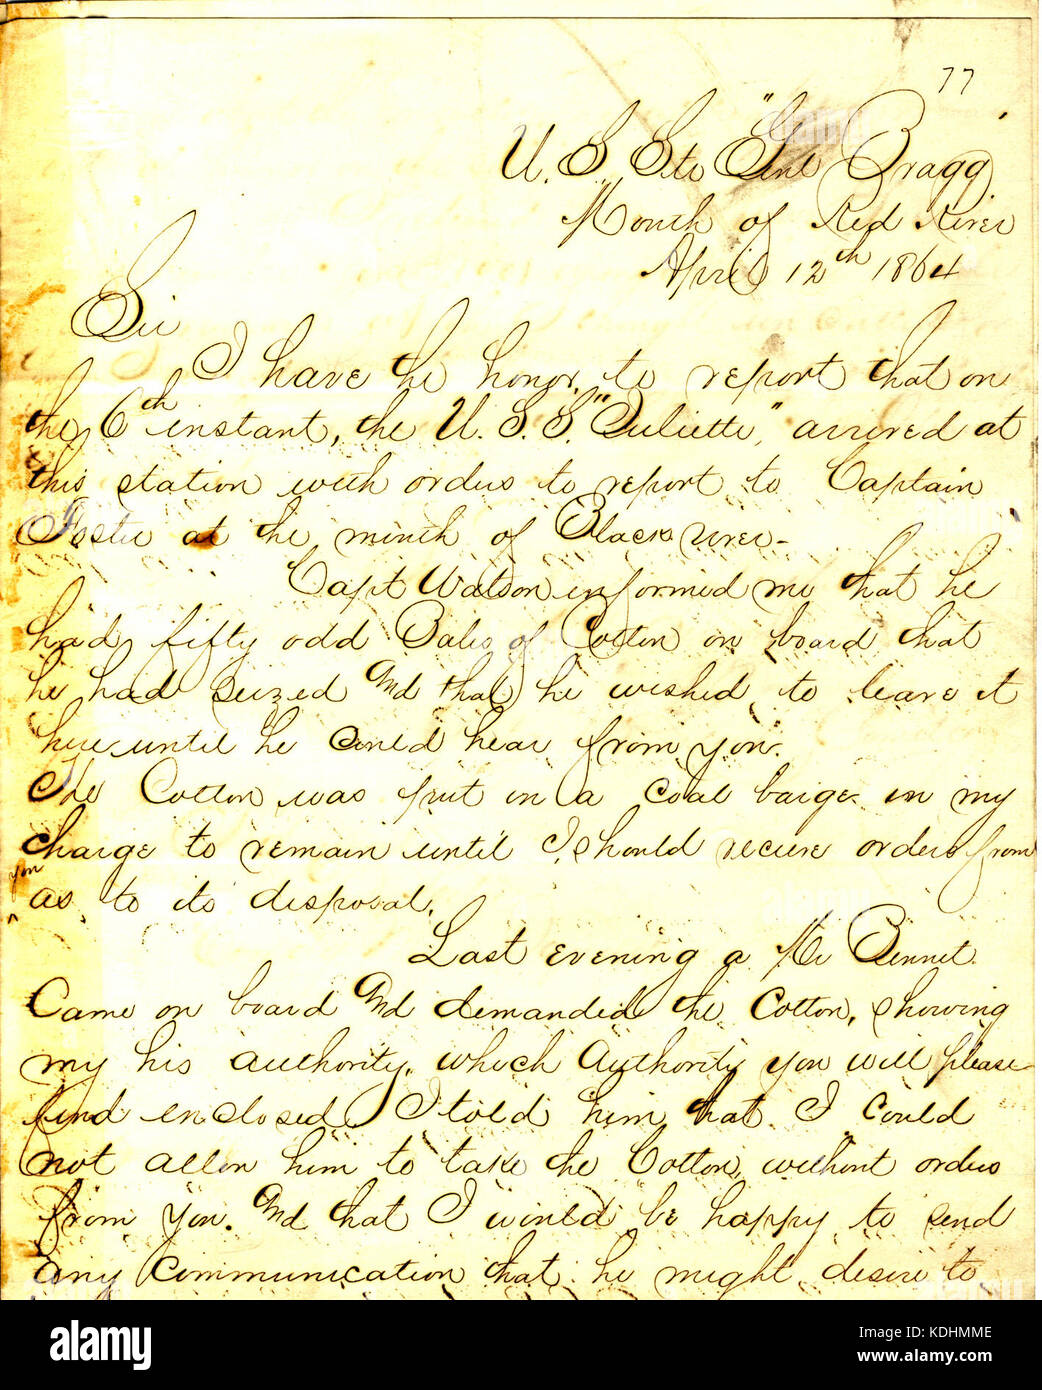 77
U. S. Str "Genl Bragg"
Mouth of Red River
April 12th 1864
Sir
I have the honor to report that on
the 6th instant, the U. S. S. "Juliette" arrived at
this station with orders to report to Captain
Foster at the mouth of Black river-
Capt Watson informed me that he
had fifty odd Bales of Cotton on board that
he had seized And that he wished to leave it
here until he could hear from you.
The Cotton was put in a coal barge in my
charge to remain until I should recieve orders from
you
as to its disposal.
Last evening a Mr Bennet
Came on board And demanded the Cotton, showing
my his authority, which Authority you will please
find enclosed. I told him that I could
not allow him to take the Cotton, without orders
from you. And that I would be happy to send
any communication that he might desire to
alamy
Image ID: KDHMME
www.alamy.com